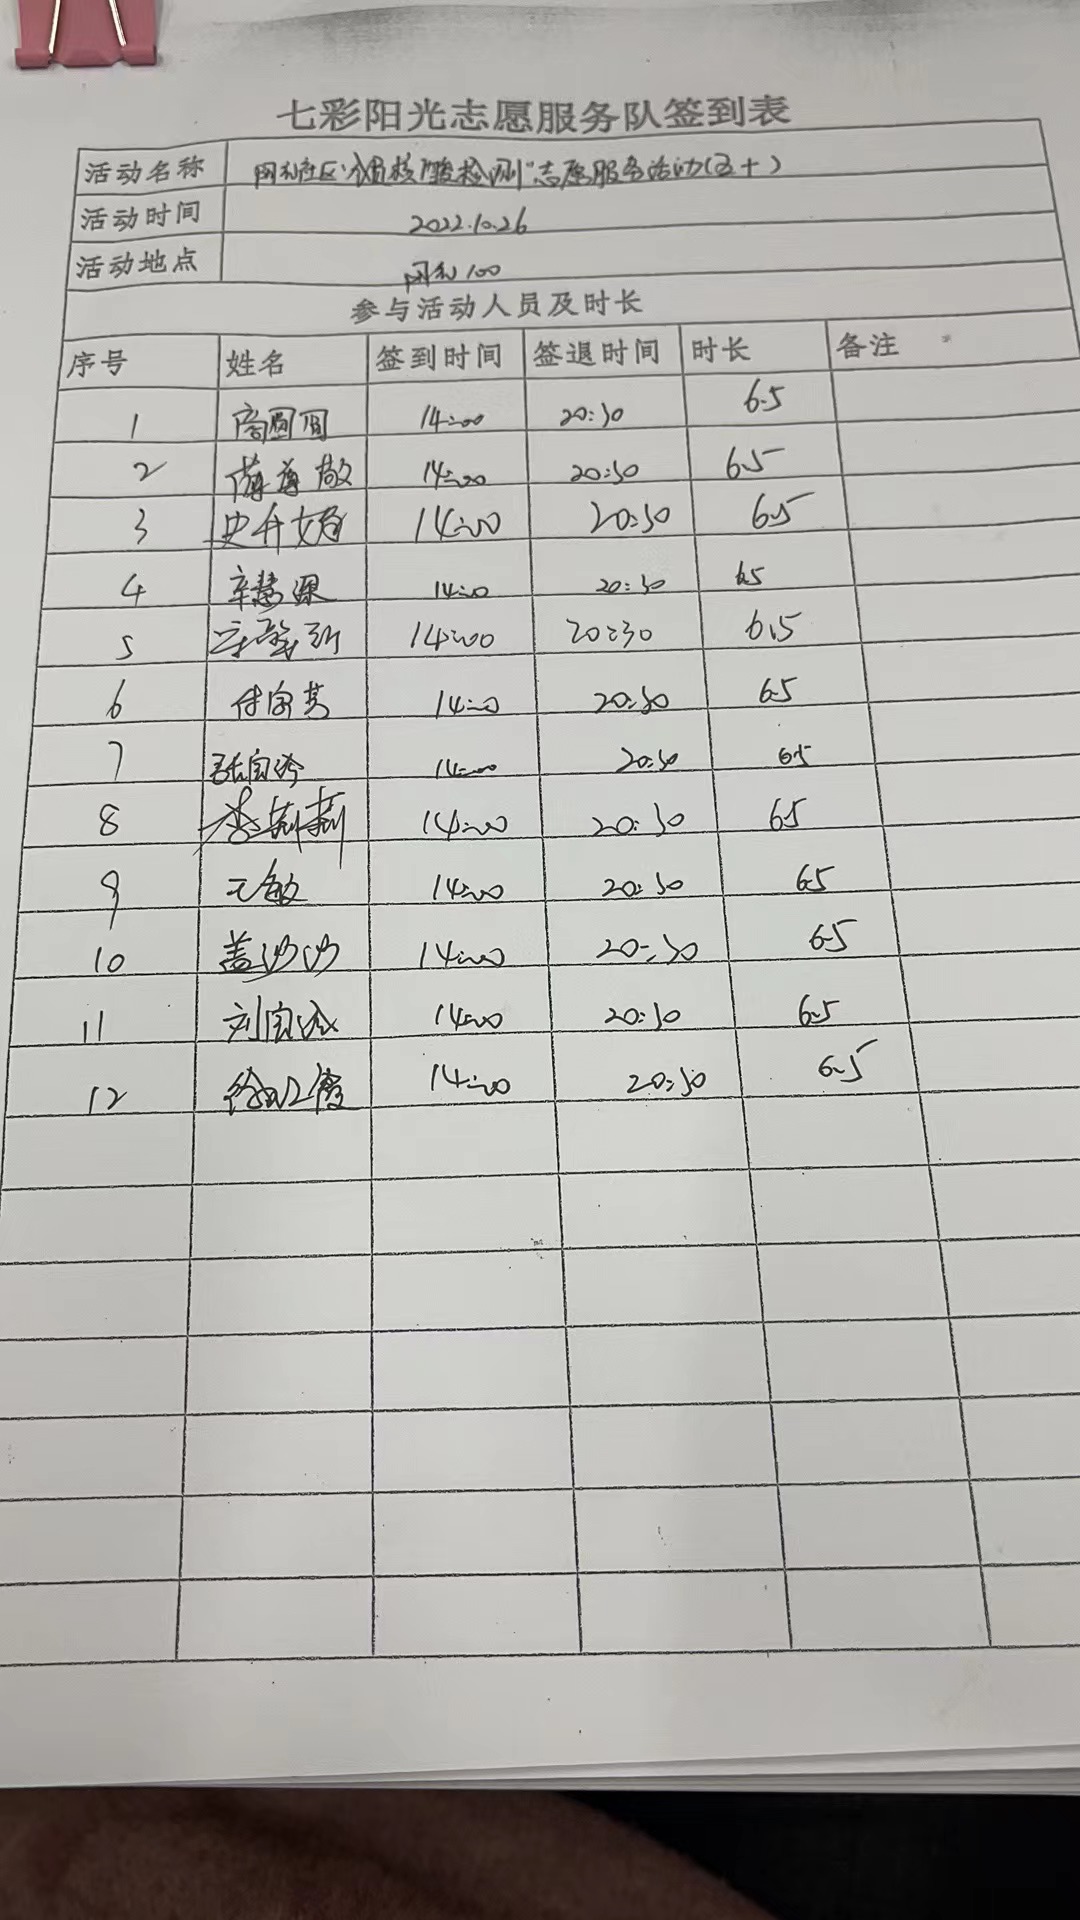 七彩阳光志愿服务队签到表
活动名称 社区"全员核酸检测"志愿服务活动(五十)
活动时间 2022.10.26
活动地点 100
参与活动人员及时长
序号 姓名 签到时间 签退时间 时长 备注
1 14:00 20:30 6.5
2 14:00 20:30 6.5
3 14:00 20:30 6.5
4 辛慧 14:00 20:30 6.5
5 14:00 20:30 6.5
6 14:00 20:30 6.5
7 张 14:00 20:30 6.5
8 李莉莉 14:00 20:30 6.5
9 王敏 14:00 20:30 6.5
10 盖沙沙 14:00 20:30 6.5
11 刘 14:00 20:30 6.5
12 徐 霞 14:00 20:30 6.5